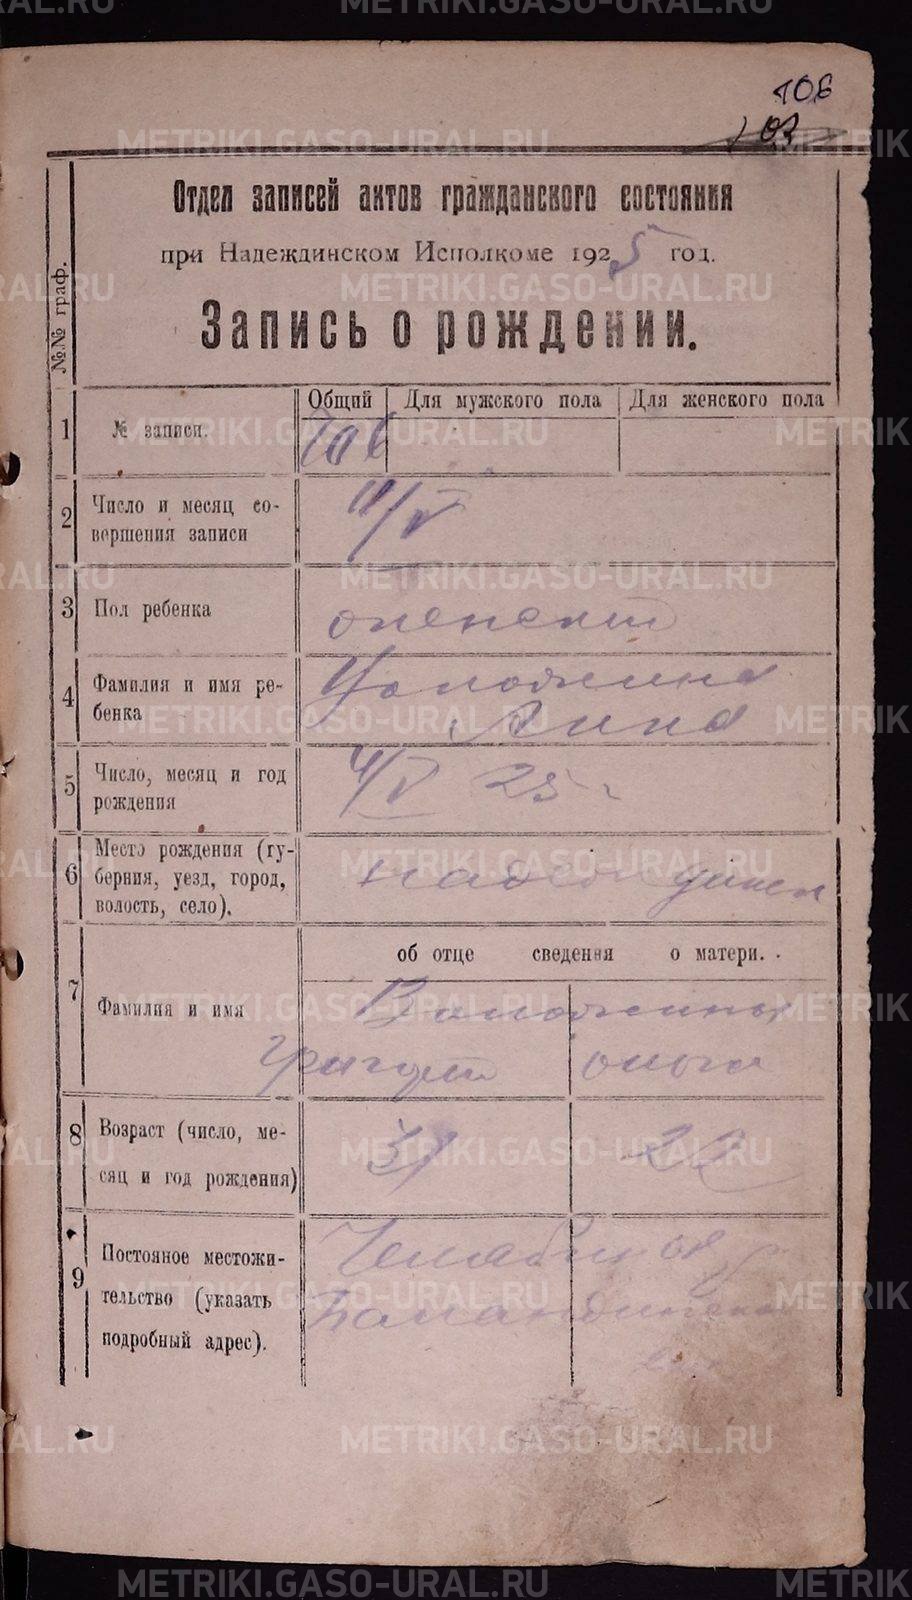 106
103
Отдел записей актов гражданского состояния
при Надеждинском Исполкоме 1925 год.
Запись о рождении.
№№ граф.
Общий Для мужского пола Для женского пола
1 № записи. 106
2 Число и месяц со-
вершения записи 11/V
3 Пол ребенка женский
4 Фамилия и имя ре-
бенка
Анна
5 Число, месяц и год
рождения 4/V 25 г
6 Место рождения (гу-
берния, уезд, город,
волость, село).
об отце сведения о матери.
7 Фамилия и имя
Григорий Ольга
8 Возраст (число, ме-
сяц и год рождения) 31 22
9 Постояное местожи-
тельство (указать
подробный адрес).
METRIKI.GASO-URAL.RU